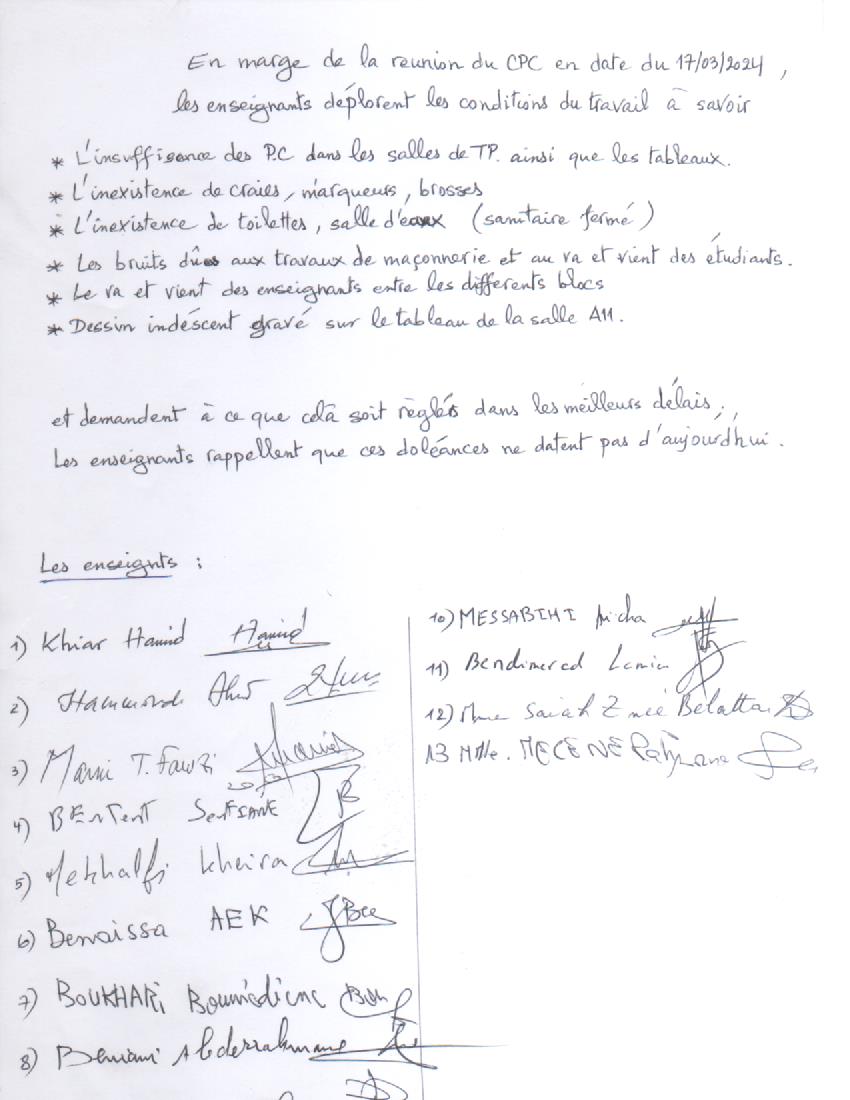 En marge de la reunion du CPC en date du 17/03/2024,
les enseignants déplorent les conditions du travail à savoir
* L'insuffisance des P.C dans les salles de TP. ainsi que les tableaux.
* L'inexistence de craies, marqueurs, brosses
* L'inexistence de toilettes, salle d'eaux (sanitaire fermé)
* Les bruits dûes aux travaux de maçonnerie et au va et vient des étudiants.
* Le va et vient des enseignants entre les differents blocs
* Dessin indéscent gravé sur le tableau de la salle A11.
et demandent à ce que celà soit règlés dans les meilleurs délais,
Les enseignants rappellent que ces doléances ne datent pas d'aujourd'hui.
Les enseignts :
1) Khiar Hamid Hamid
2)
3) T. Fawzi
4)
5) Mekhalfi Kheira
6) Benaissa AEK
7) BOUKHARi Boumèdiene
8) Abderrahmane
10) MESSABIHI Aicha
11) Bendimered Lamia
12) Mme Saiah Z née
13 Mlle. MECENE